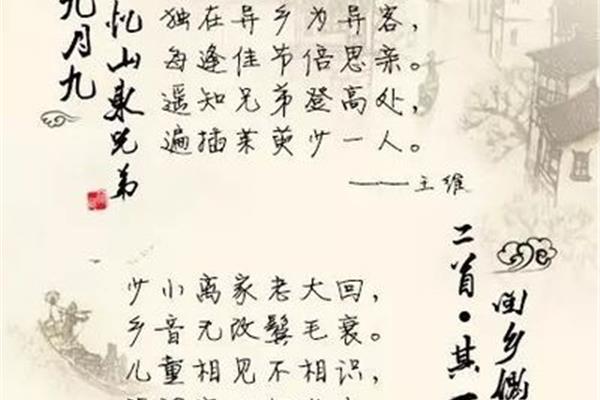 九月九
忆山東兄弟
独在异乡为异客，
每逢佳节倍思亲。
遥知兄弟登高处，
遍插茱萸少一人。
——王维
回乡偶
二首·其一
少小离家老大回，
乡音无改鬓毛衰。
儿童相见不相识，